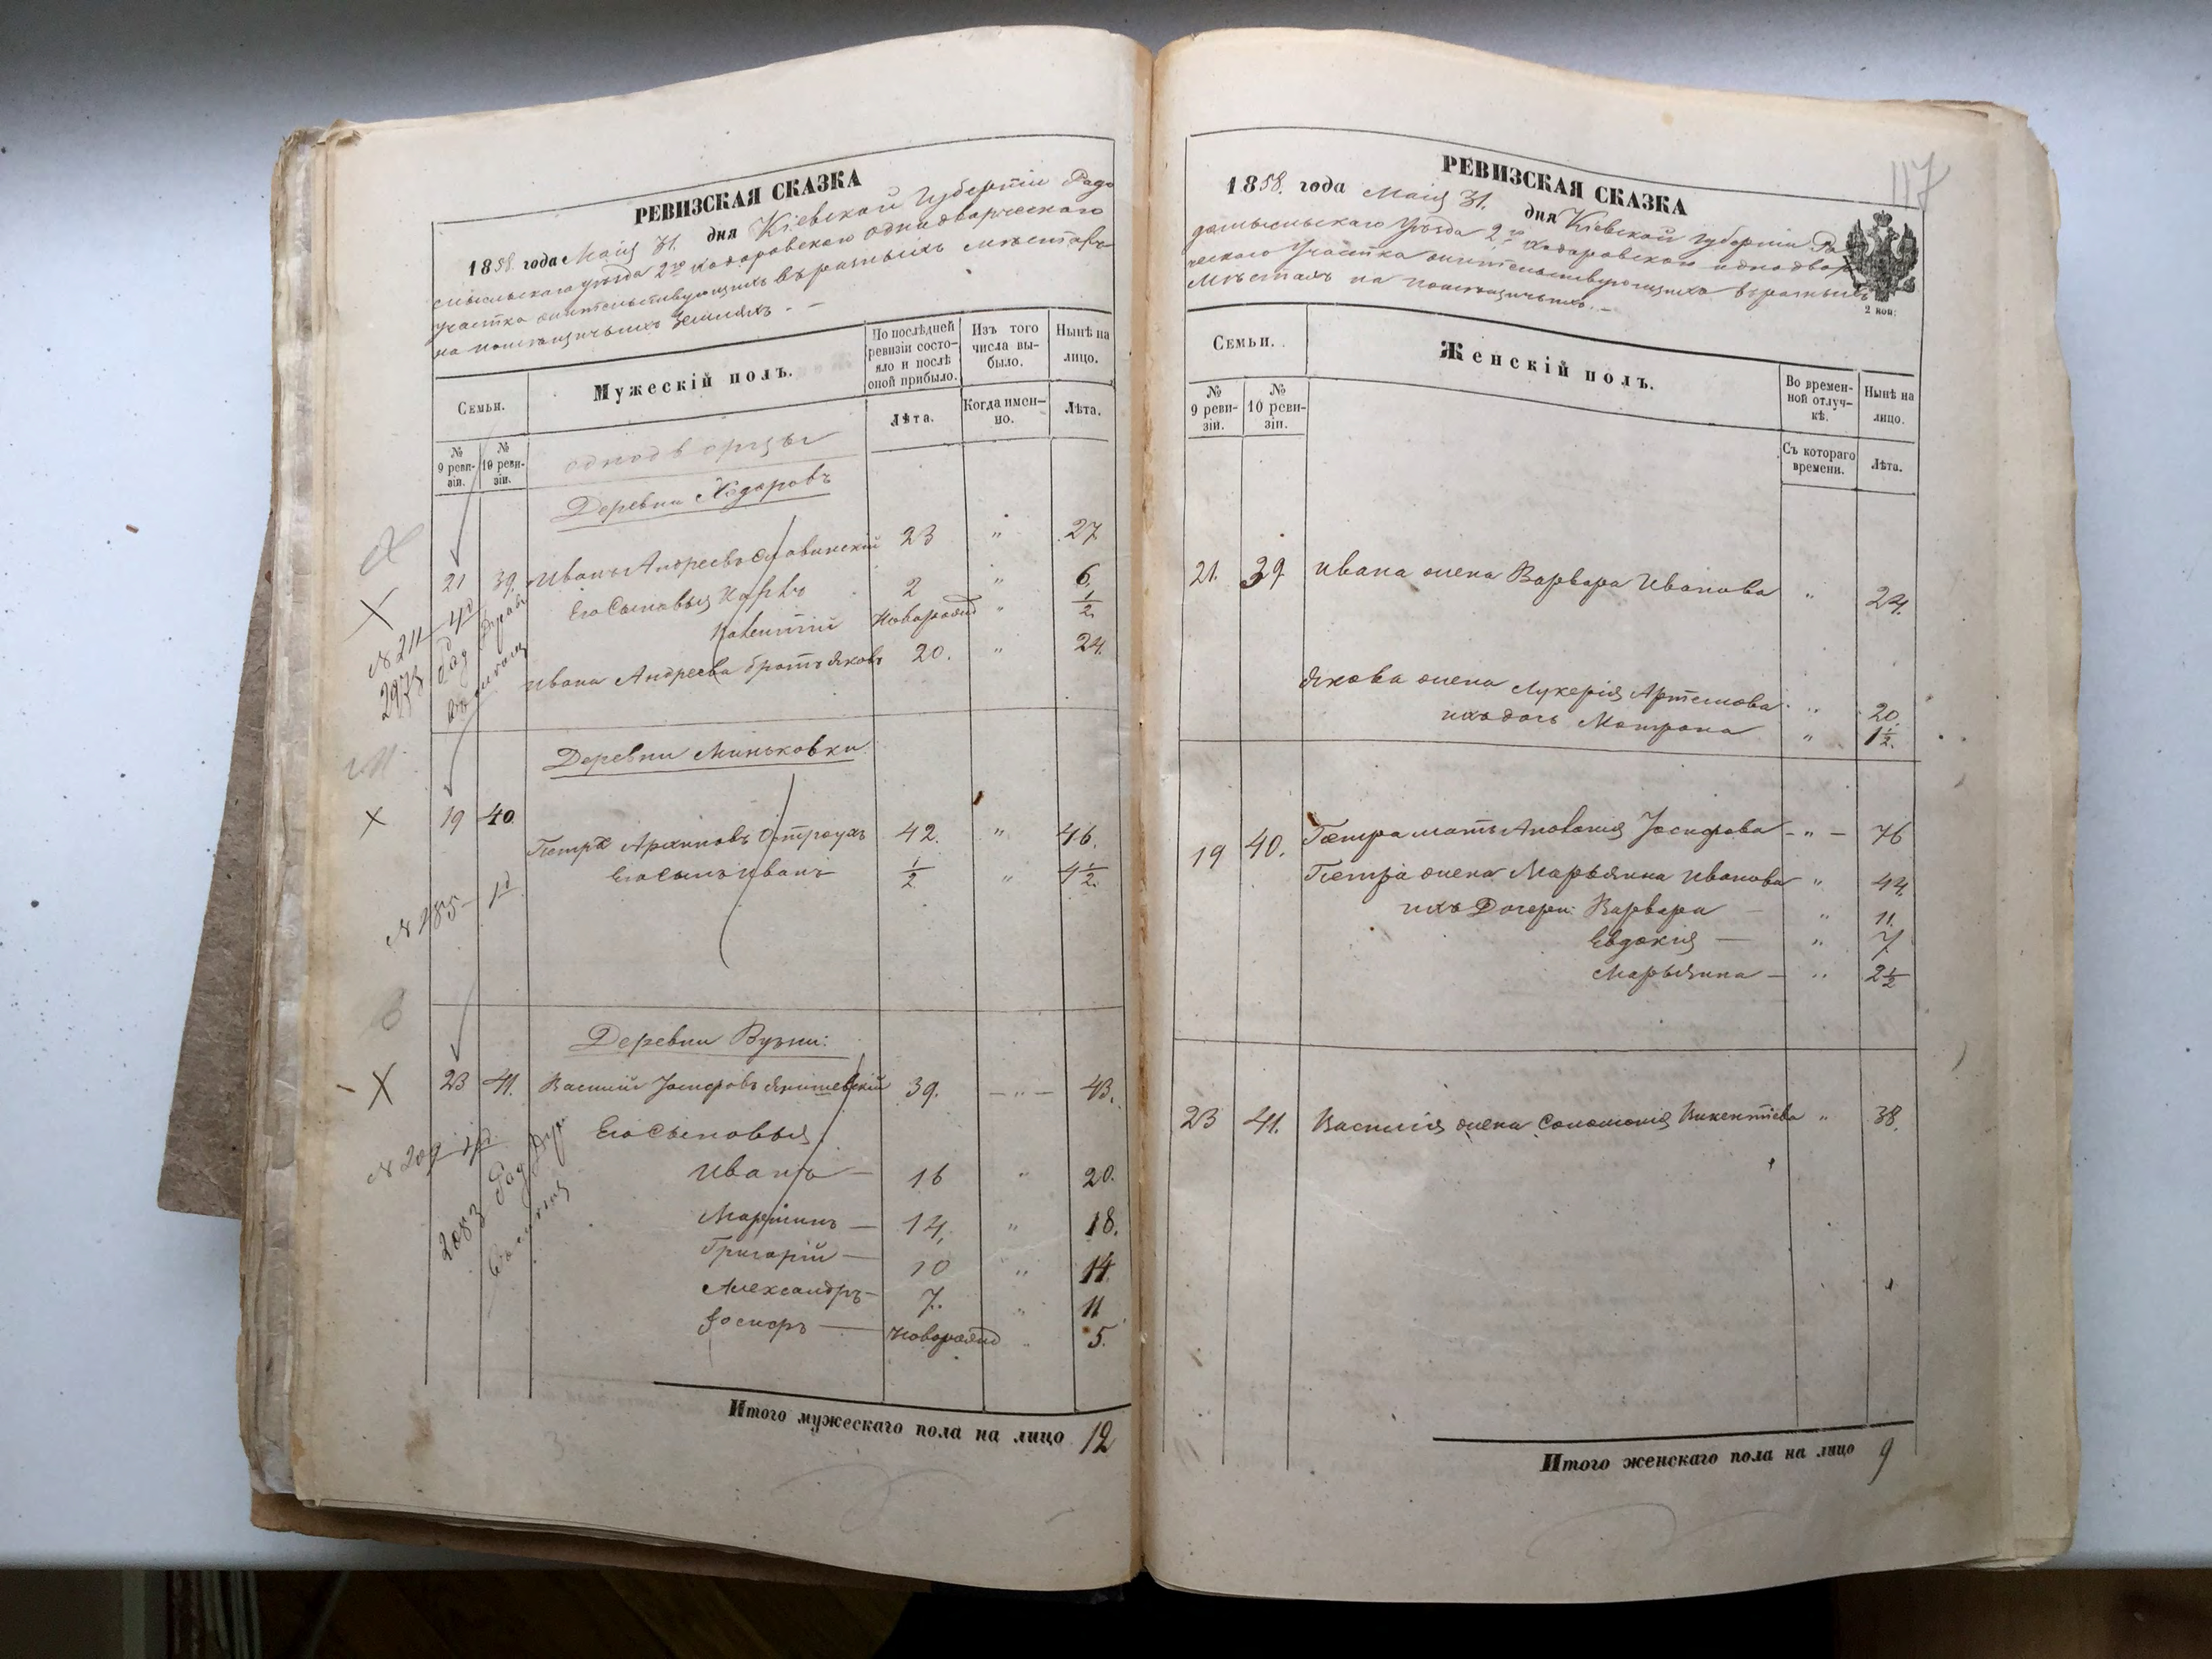 РЕВИЗСКАЯ СКАЗКА
1858. года Маія 31. дня Кіевской Губерніи Радо
мысльскаго уѣзда 2го Ходоровскаго однодворческаго
участка жительствующихъ въ разныхъ мѣстахъ
на помѣщичьихъ земляхъ. –
Семьи.
Мужескій полъ.
По послѣдней ревизіи состояло и послѣ оной прибыло.
Изъ того числа выбыло.
Нынѣ на лицо.
№ 9 ревизіи.
№ 10 ревизіи.
Лѣта.
Когда именно.
Лѣта.
однодворцы
Деревни Ходоровъ
21 39. Иванъ Андреевъ 23 " 27
Его Сыновья 2 " 6.
Новорожд " 1/2.
Ивана Андреева братъ Яковъ 20. " 24.
№ 211
2973
Деревни Миньковки
19 40 Петръ Архиповъ Остроухъ 42. " 46.
Его сынъ Иванъ 1/2 " 4 1/2.
№ 185 –
Деревни Вузни:
23 41. Василій Іосифовъ Янишевскій 39. – " – 43.
Его Сыновья
Иванъ – 16 " 20.
Мартинъ – 14, " 18.
Григорій – 10 " 14
Александръ – 7. " 11
Іосифъ – новорожд " 5.
№ 209
2083
Итого мужескаго пола на лицо 12
117
РЕВИЗСКАЯ СКАЗКА
1858. года Маія 31. дня Кіевской Губерніи Ра
домысльскаго уѣзда 2го Ходоровскаго однодвор
ческаго Участка жительствующихъ въ разныхъ
мѣстахъ на помѣщичьихъ. –
2 коп:
Семьи.
Женскій полъ.
Во временной отлучкѣ.
Нынѣ на лицо.
№ 9 ревизіи.
№ 10 ревизіи.
Съ котораго времени.
Лѣта.
21. 39. Ивана жена Варвара Иванова " 24.
Якова жена Лукерія Артемова " 20.
ихъ дочь Матрона " 1 1/2.
19 40. Петра мать Аполонія Іосифова – " – 76
Петра жена Марьянна Иванова " 44.
ихъ Дочери: Варвара – " 11.
Евдокія – " 7
Марьянна – " 2 1/2
23 41. Василія жена Соломонія Викентіева " 38.
Итого женскаго пола на лицо 9